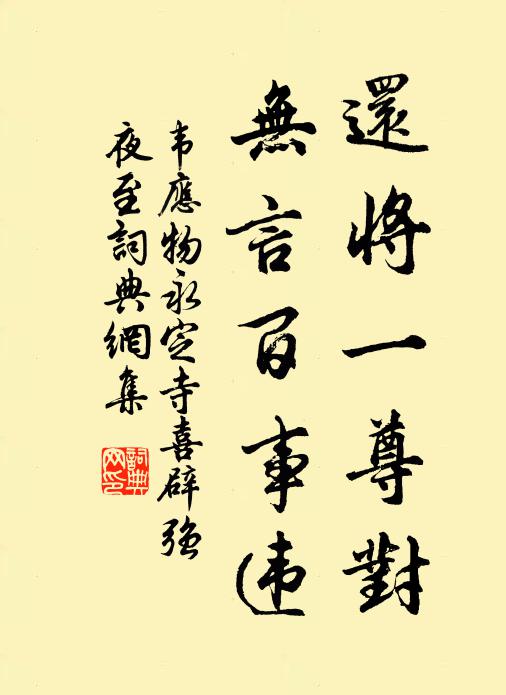 還將一尊對
無言百事违
韦應物永定寺喜辟強
夜至詞典網集
詞典网印